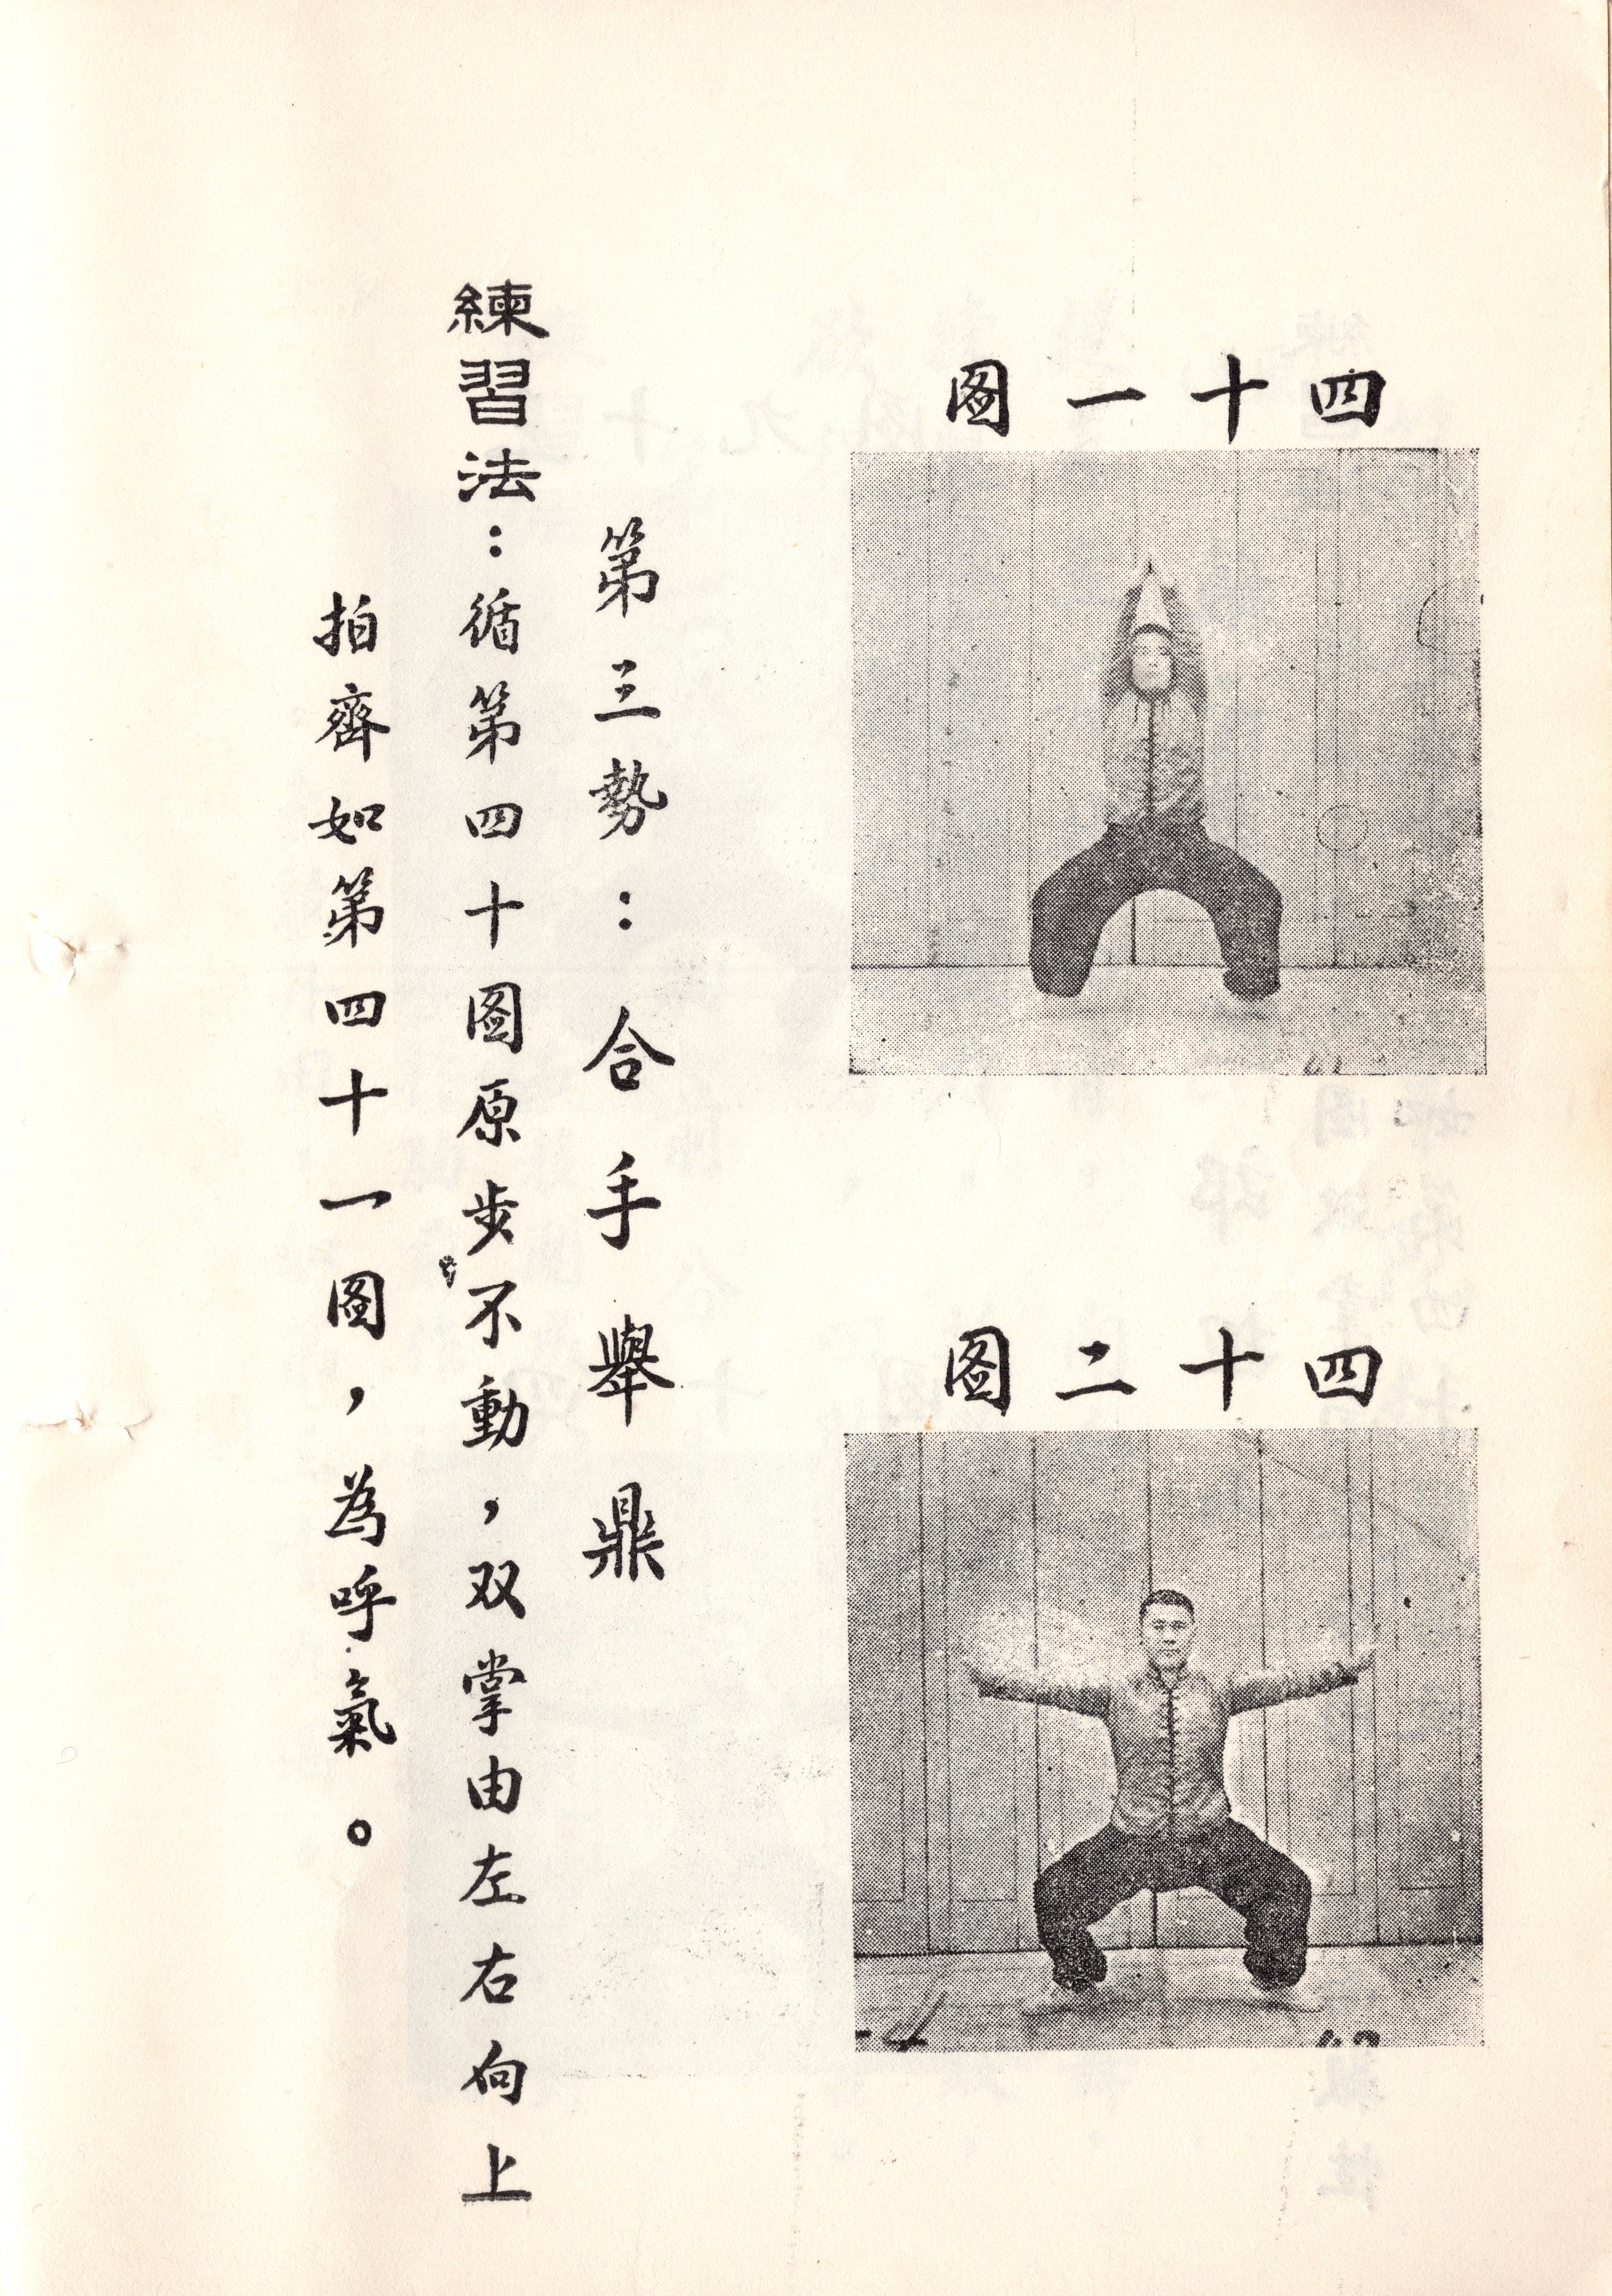 四十一图
四十二图
第三勢：合手舉鼎
練習法：循第四十图原步不動，双掌由左右向上
拍齊如第四十一图，為呼氣。